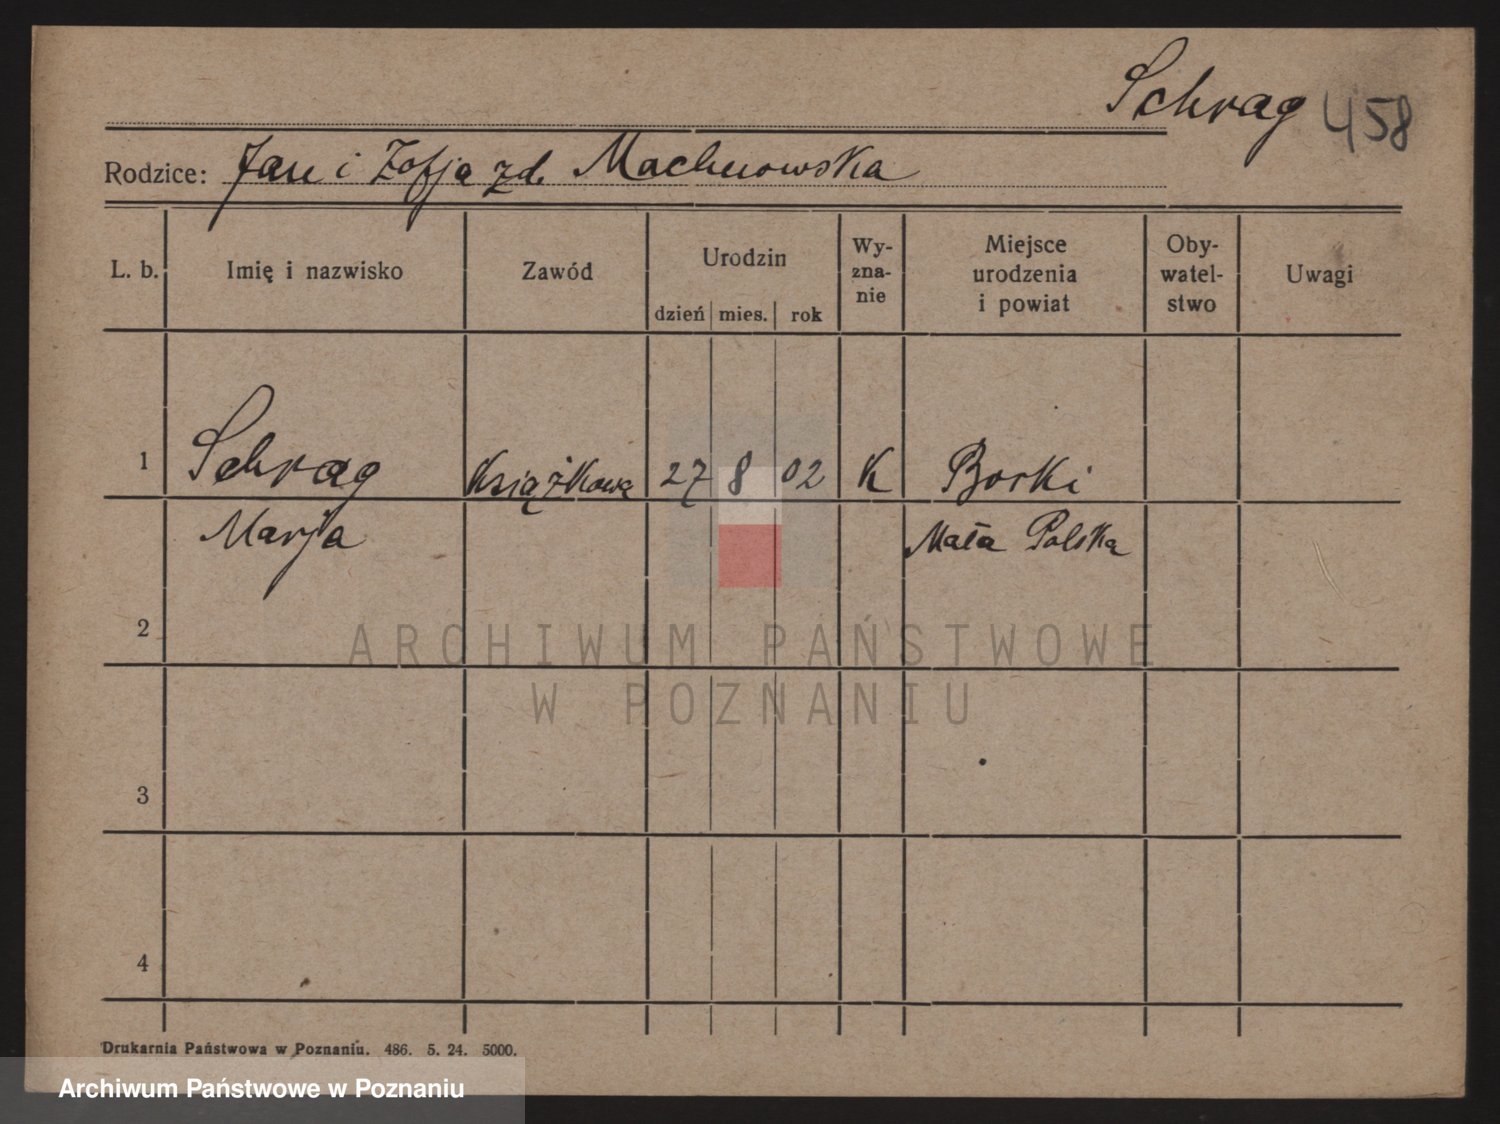 Schrag 458
Rodzice: Jan i Zofja zd. Machnowska
L. b. Imię i nazwisko Zawód Urodzin Wy- Miejsce Oby- Uwagi
zna- urodzenia watel-
dzień mies. rok nie i powiat stwo
1 Schrag Książkowa 27 8 02 K Borki
Marja Mała Polska
2
ARCHIWUM PAŃSTWOWE
W POZNANIU
3
4
Drukarnia Państwowa w Poznaniu. 486. 5. 24. 5000.
Archiwum Państwowe w Poznaniu